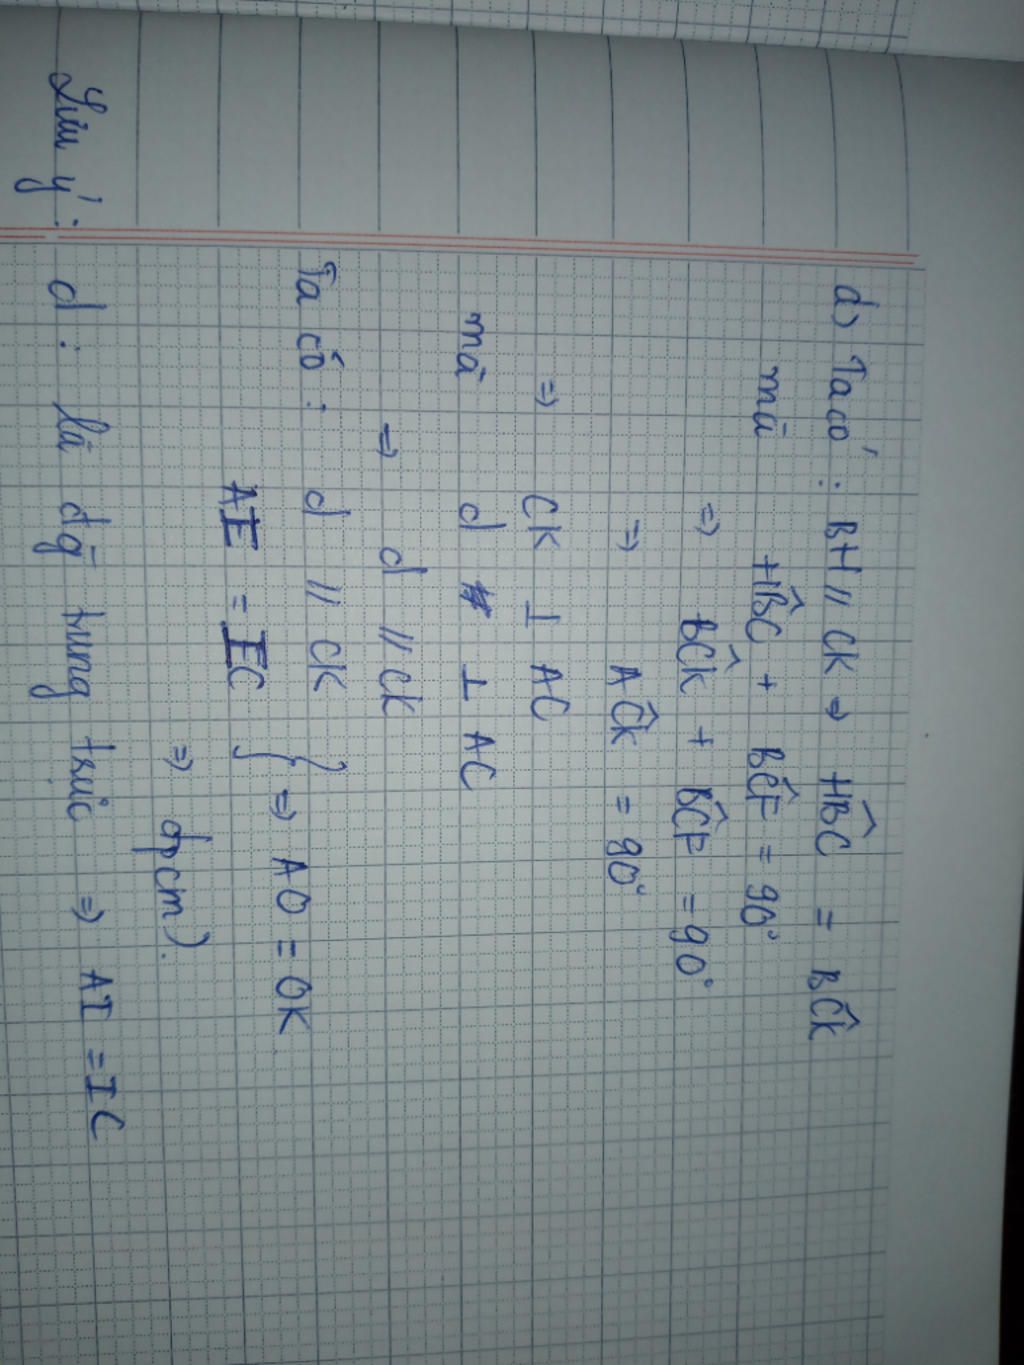 d) Ta có: BH // CK ⇒ HB̂C = BĈK
mà HB̂C + BĈF = 90°
⇒ BĈK + BĈF = 90°
⇒ AĈK = 90°
⇒ CK ⊥ AC
mà d ⊥ AC
⇒ d // CK
Ta có: d // CK
AI = IC } ⇒ AO = OK
⇒ đpcm).
Lưu ý: d: là đg trung trực ⇒ AI = IC